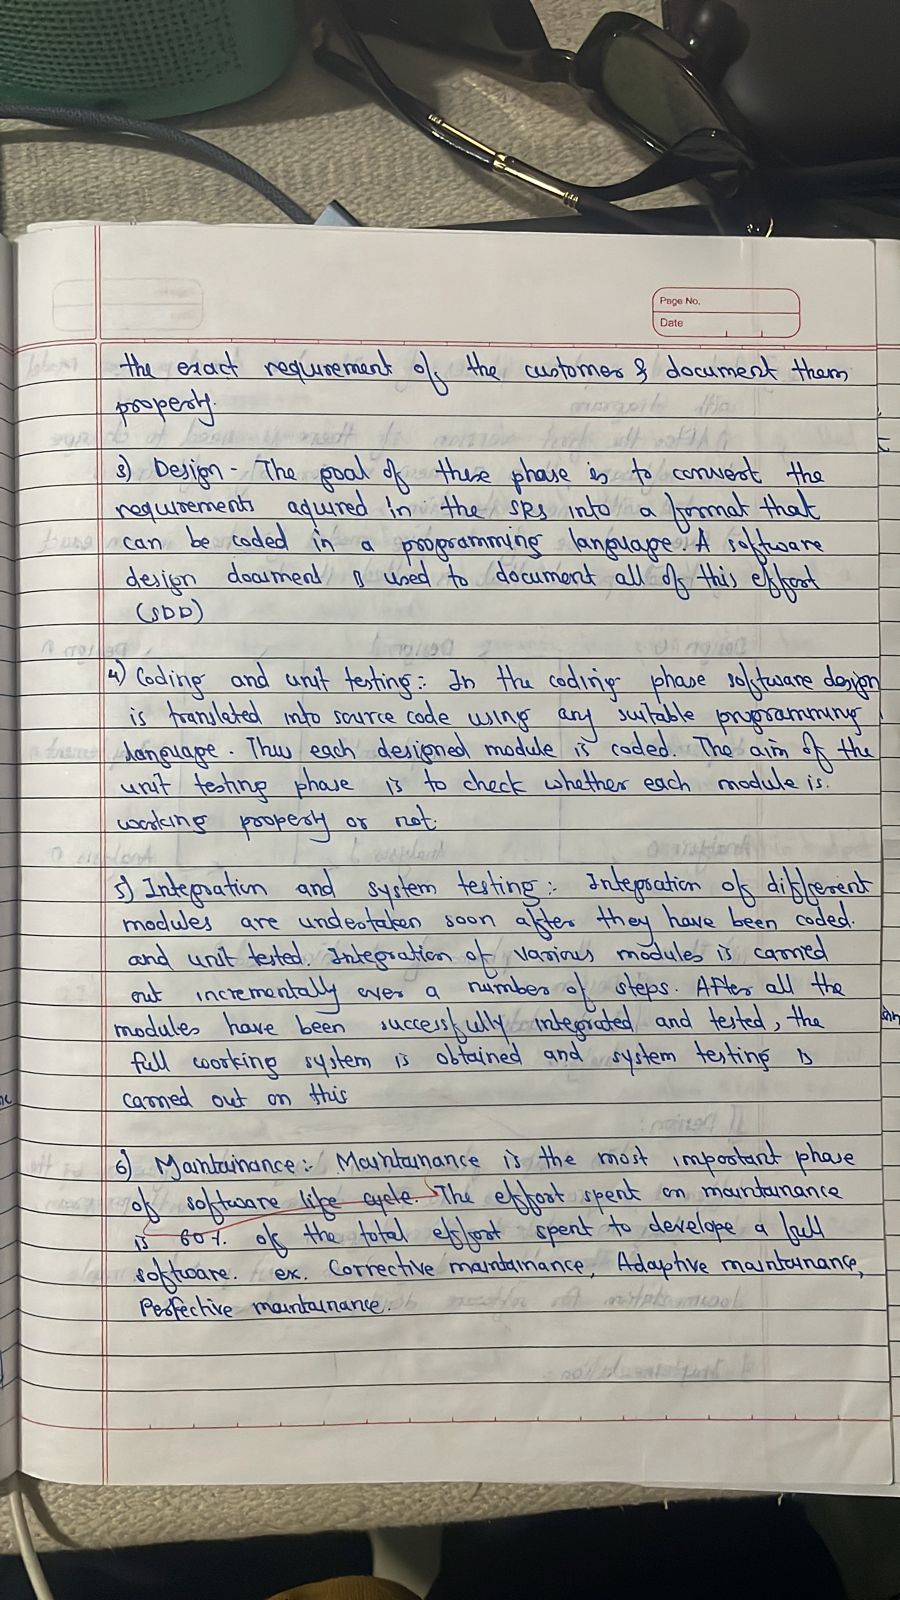 Page No.
Date
the exact requirement of the customer & document them
properly.
3) Design - The goal of these phase is to convert the
requirements aquired in the SRS into a format that
can be coded in a programming language. A software
design document is used to document all of this effort
(SDD)
4) Coding and unit testing :- In the coding phase software design
is translated into source code using any suitable programming
language. Thus each designed module is coded. The aim of the
unit testing phase is to check whether each module is.
working properly or not.
5) Integration and system testing :- Integration of different
modules are undertaken soon after they have been coded.
and unit tested. Integration of various modules is carried
out incrementally over a number of steps. After all the
modules have been successfully integrated and tested, the
full working system is obtained and system testing is
carried out on this
6) Maintainance :- Maintainance is the most important phase
of software life cycle. The effort spent on maintainance
is 60% of the total effort spent to develope a full
software. ex. Corrective maintainance, Adaptive maintainance,
Perfective maintainance.